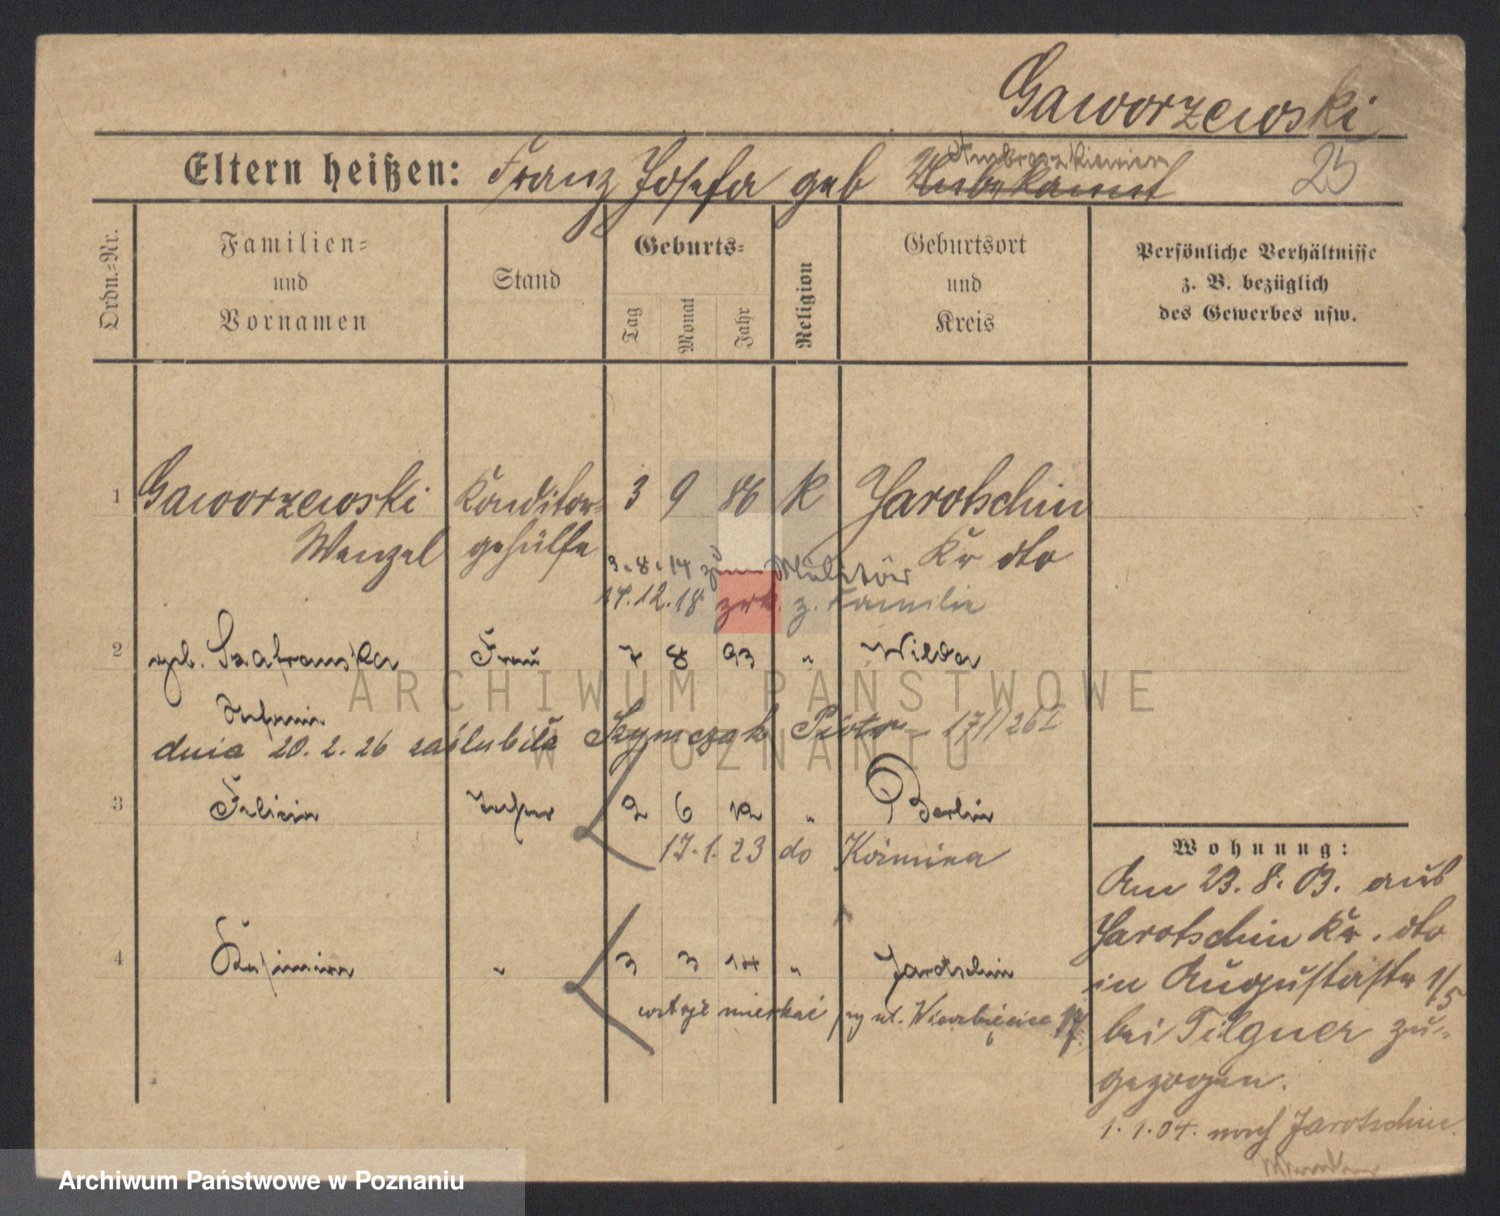 Gaworzewski
25
Eltern heißen: Franz Josefa geb Unbekannt
Ordn.-Nr.
Familien-
und
Vornamen
Stand
Geburts-
Tag
Monat
Jahr
Religion
Geburtsort
und
Kreis
Persönliche Verhältnisse
z. B. bezüglich
des Gewerbes usw.
1 Gaworzewski Konditor- 3 9 86 K Jarotschin
Wenzel gehülfe Kr dto
3.8.14 zum Militär
17.12.18 zrk. z. Familie
2 geb. Szafranska Frau 7 8 93 " Wilda
Stefania
dnia 20.2.26 zaślubiła Szymczak Piotr - 17/I 26
3 Felicia Tochter 2 6 12 " Berlin
17.1.23 do Koźmina
4 Kasimira " 3 3 14 " Jarotschin
mieszkać przy ul. Wierzbięcice
Wohnung:
Am 23.8.03. aus
Jarotschin Kr. dto
in Augustastr 1/5
bei Tilgner zu-
gezogen.
1.1.04. nach Jarotschin
ARCHIWUM PAŃSTWOWE
W POZNANIU
Archiwum Państwowe w Poznaniu